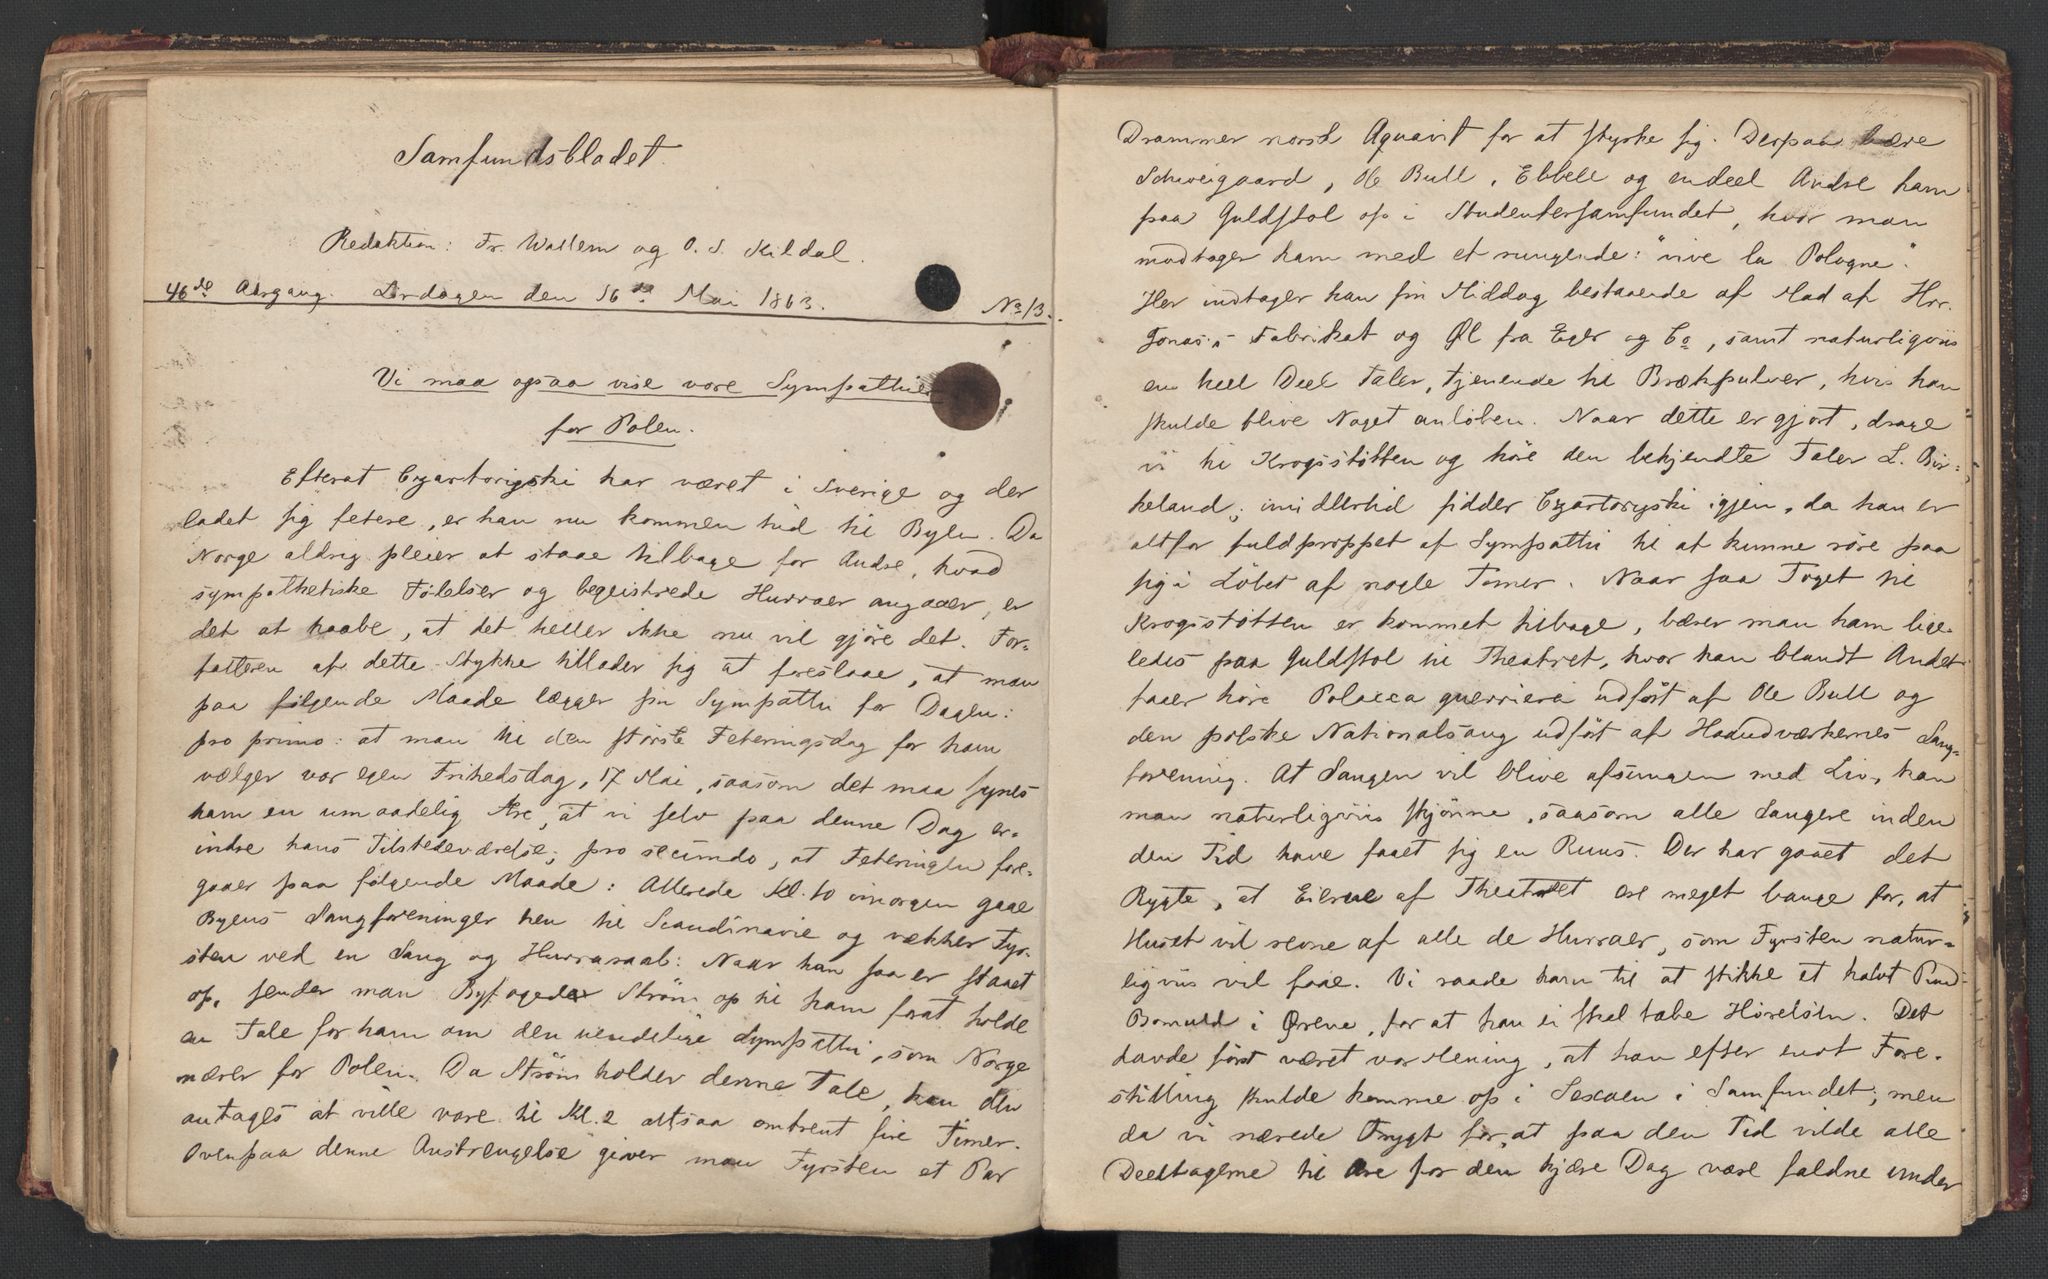 Samfundsbladet.
Redaktion: Fr. Wallem og O. S. Kildal.
46de Aargang. Lørdagen den 16de Mai 1863. No 13.
Vi maa ogsaa vise vore Sympathier
for Polen.
Efterat Czartoryski har været i Sverige og der
ladet sig fetere, er han nu kommen hid til Byen. Da
Norge aldrig pleier at staae tilbage for Andre, hvad
sympathetiske Følelser og begeistrede Hurraer angaaer, er
det at haabe, at det heller ikke nu vil gjöre det. For-
fatteren af dette Stykke tillader sig at foreslaae, at man
paa følgende Maade lægger sin Sympathi for Dagen:
pro primo: at man til den störste Feteringsdag for ham
vælger vor egen Frihedsdag, 17 Mai, saasom det maa synes
ham en umaadelig Ære, at vi selv paa denne Dag er-
indre hans Tilstedeværelse; pro secundo, at Feteringen fore-
gaaer paa følgende Maade: Allerede Kl. 10 imorgen gaae
Byens Sangforeninger hen til Scandinavie og vækker Fyr-
sten ved en Sang og Hurraraab: Naar han saa er staaet
op, sender man Byfoged Ström op til ham forat holde
en Tale for ham om den uendelige Sympathi, som Norge
nærer for Polen. Da Ström holder denne Tale, kan den
antages at ville vare til Kl. 2 altsaa omtrent fire Timer.
Ovenpaa denne Anstrengelse giver man Fyrsten et Par
Drammer norsk Aquavit for at styrke sig. Derpaa bære
Schweigaard, Ole Bull, Ebbell og endeel Andre ham
paa Guldstol op i Studentersamfundet, hvor man
modtager ham med et rungende: "vive la Pologne".
Her indtager han sin Middag bestaaende af Mad af Hrr.
Jonas's Fabrikat og Øl fra Eger og Co, samt naturligviis
en heel Deel Taler, tjenende til Brækpulver, hvis han
skulde blive Noget anløben. Naar dette er gjort, drage
vi til Krogsstötten og höre den bekjendte Taler L. Bir-
keland; imidlertid sidder Czartoryski igjen, da han er
altfor fuldproppet af Sympathi til at kunne röre paa
sig i Löbet af nogle Timer. Naar saa Toget til
Krogsstötten er kommet tilbage, bærer man ham lige-
ledes paa Guldstol til Theatret, hvor han blandt Andet
faaer höre Polacca guerriera udfört af Ole Bull og
den polske Nationalsang udfört af Haandværkernes Sang-
forening. At Sangen vil blive afsungen med Liv, kan
man naturligviis skjönne, saasom alle Sangere inden
den Tid have faaet sig en Ruus. Der har gaaet det
Rygte, at Eierne af Theatret ere meget bange for, at
Huset vil revne af alle de Hurraer, som Fyrsten natur-
ligviis vil faae. Vi raade ham til at stikke et halvt Pund
Bomuld i Ørene, for at han ei skal tabe Hörelsen. Det
havde först været vor Mening, at han efter endt Fore-
stilling skulde komme op i Sexaen i Samfundet; men
da vi nærede Frygt for, at paa den Tid vilde alle
Deeltagerne til Ære for den kjære Dag være faldne under